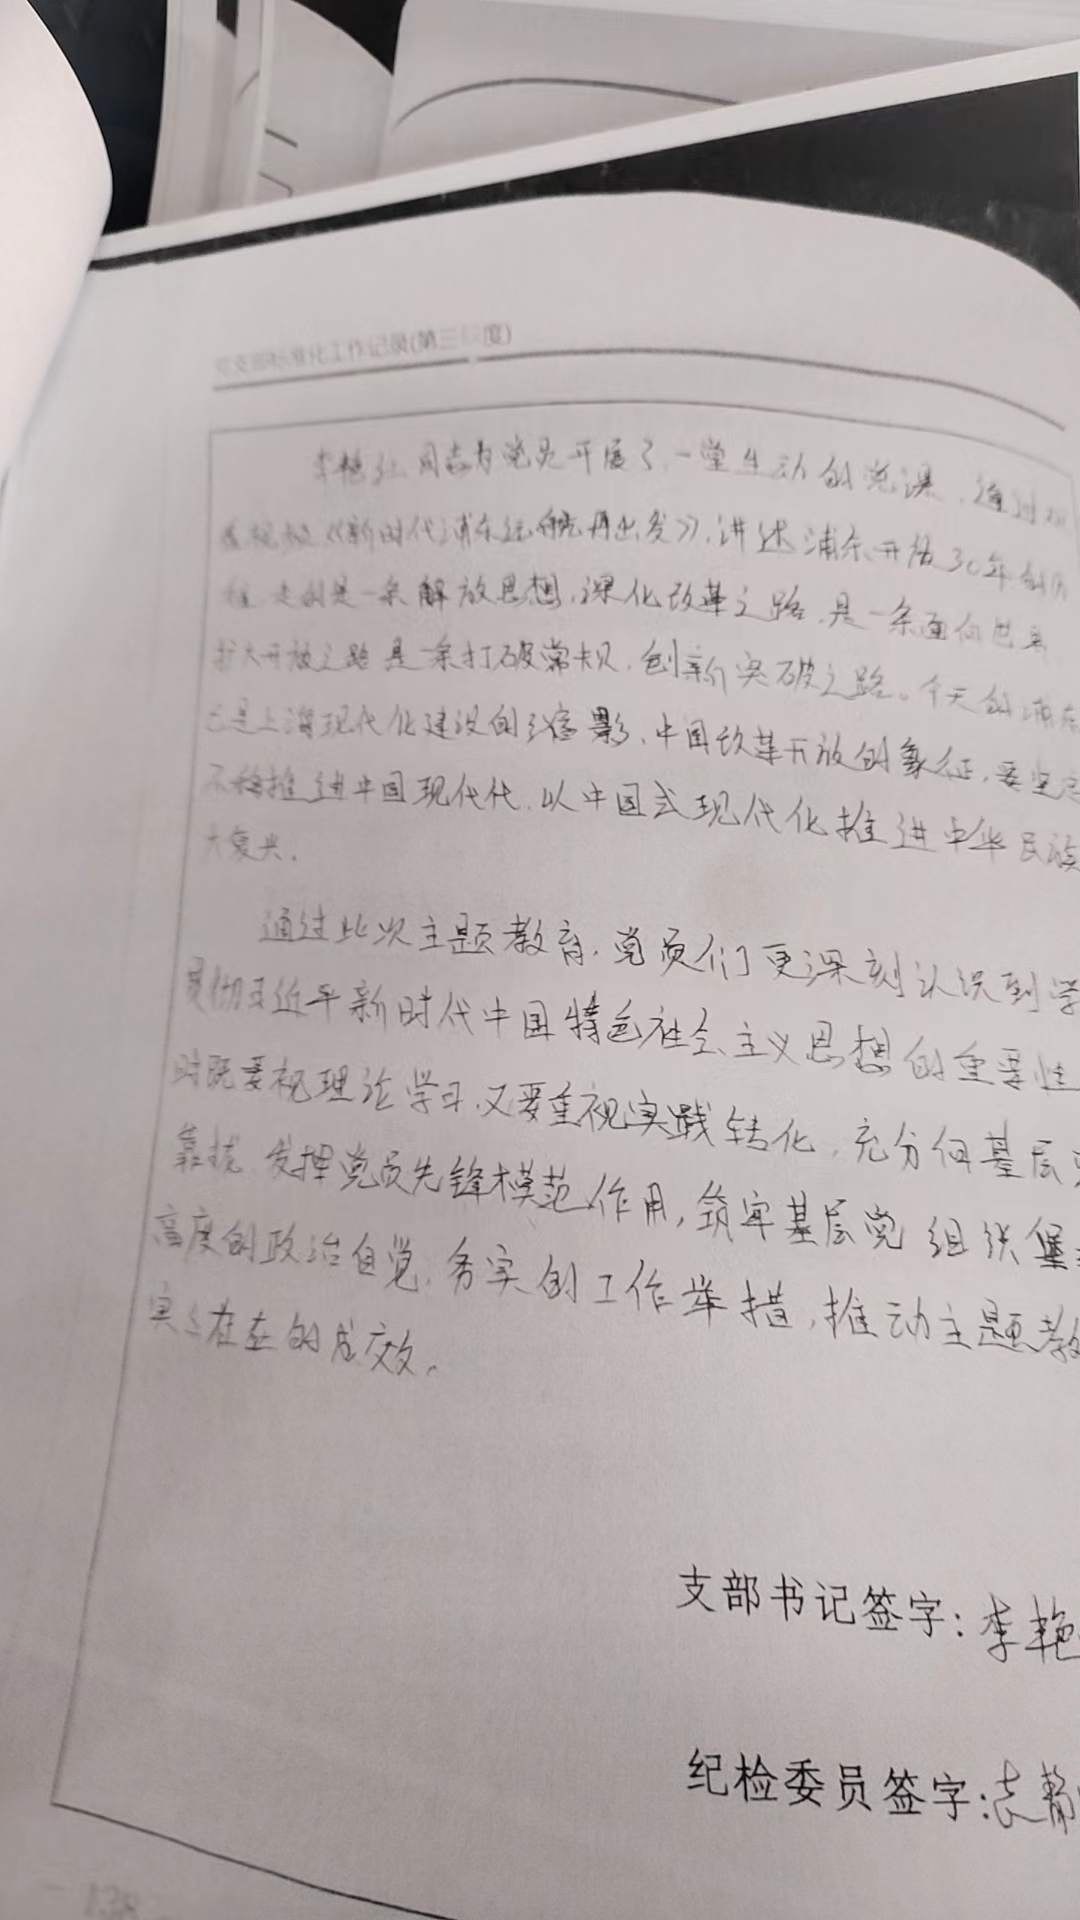 同志为党员开展了一堂生动的党课,通过
视频《新时代浦东 再出发》,讲述浦东开放30年的历
走的是一条解放思想,深化改革之路,是一条面向世界
扩大开放之路是一条打破常规,创新突破之路。今天的浦东
已是上海现代化建设的缩影,中国改革开放的象征,要坚定
不移推进中国现代代,以中国式现代化推进中华民族
大复兴。
通过此次主题教育,党员们更深刻认识到学
贯彻习近平新时代中国特色社会主义思想的重要性
时既要视理论学习,又要重视实践转化,充分向基层
靠拢,发挥党员先锋模范作用,筑牢基层党组织堡
高度的政治自觉,务实的工作举措,推动主题教
实在在的成效。
支部书记签字:李艳
纪检委员签字:
138